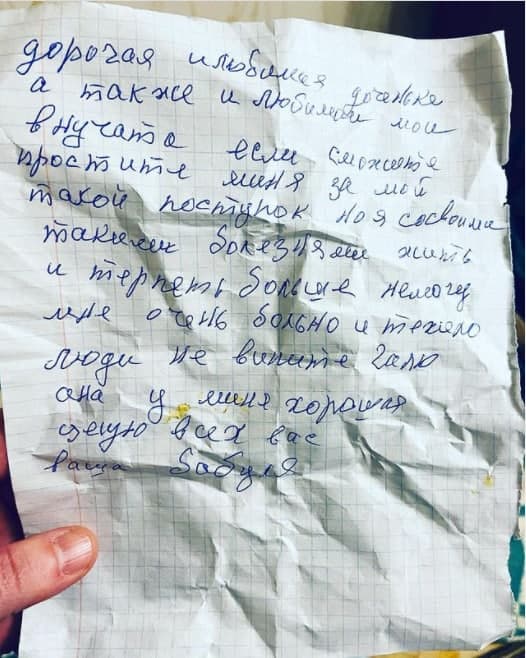 дорогая и любимая доченька
а также и любимои мои
внучата если сможите
простите миня за мой
такой поступок но я со своими
такими болезнями жить
и терпеть больше немогу
мне очень больно и тежело
люди не вините Галю
она у миня хорошая
целую всех вас
ваша бабуля